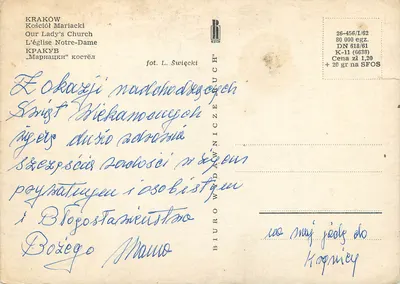 KRAKÓW
Kościół Mariacki
Our Lady's Church
L'église Notre-Dame
КРАКУВ
„Мариацки" костёл
fot. L. Święcki
26-456/I/63
50 000 egz.
DN 618/61
K-11 (6628)
Cena zł 1,20
+ 20 gr na SFOS
BIURO WYDAWNICZE „RUCH"
Z okazji nadchodzących
Świąt Wielkanocnych
życzę dużo zdrowia
szczęścia radości w życiu
prywatnym i osobistym
i Błogosławieństwa
Bożego Mama
na maj jadę do
Krynicy